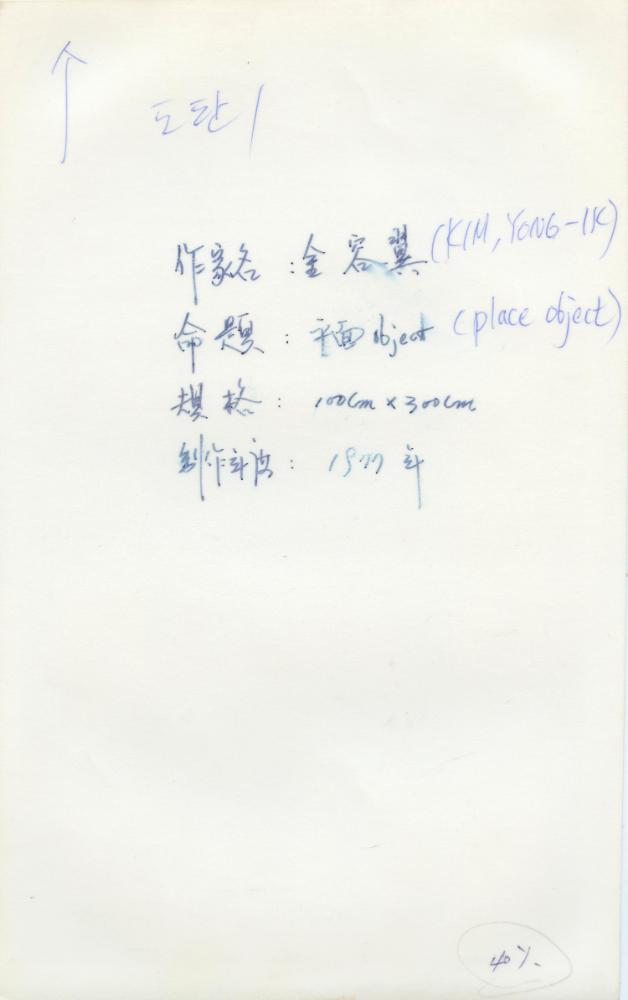 도판 1
作家名 : 金容翼 (KIM, YONG-IK)
命題 : 平面 object (place object)
規格 : 100cm x 300cm
制作年度 : 1977 年
40%